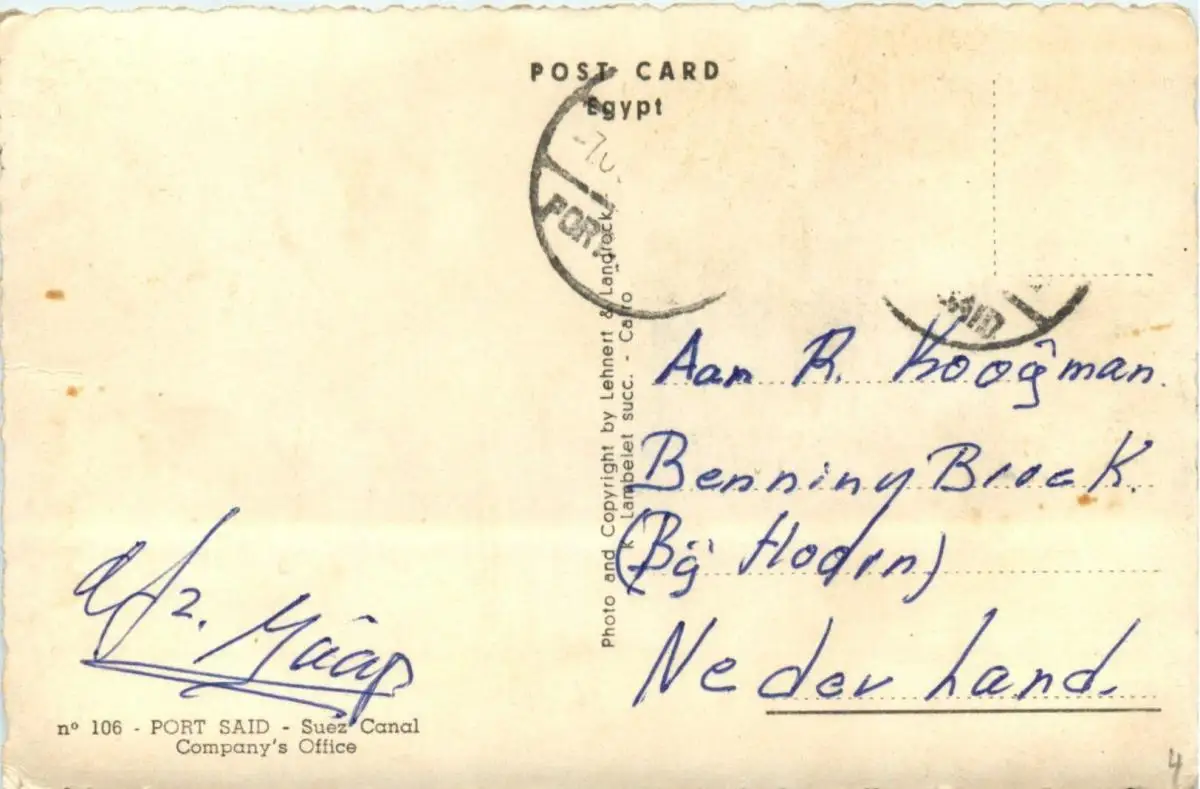 POST CARD
Egypt
-7
PORT
SAID
Photo and Copyright by Lehnert & Landrock
K. Lambelet succ. - Cairo
Aan R. Kooijman.
Benning Broek.
(Bij Hoorn)
Nederland.
afz.
nº 106 - PORT SAID - Suez Canal
Company's Office
4